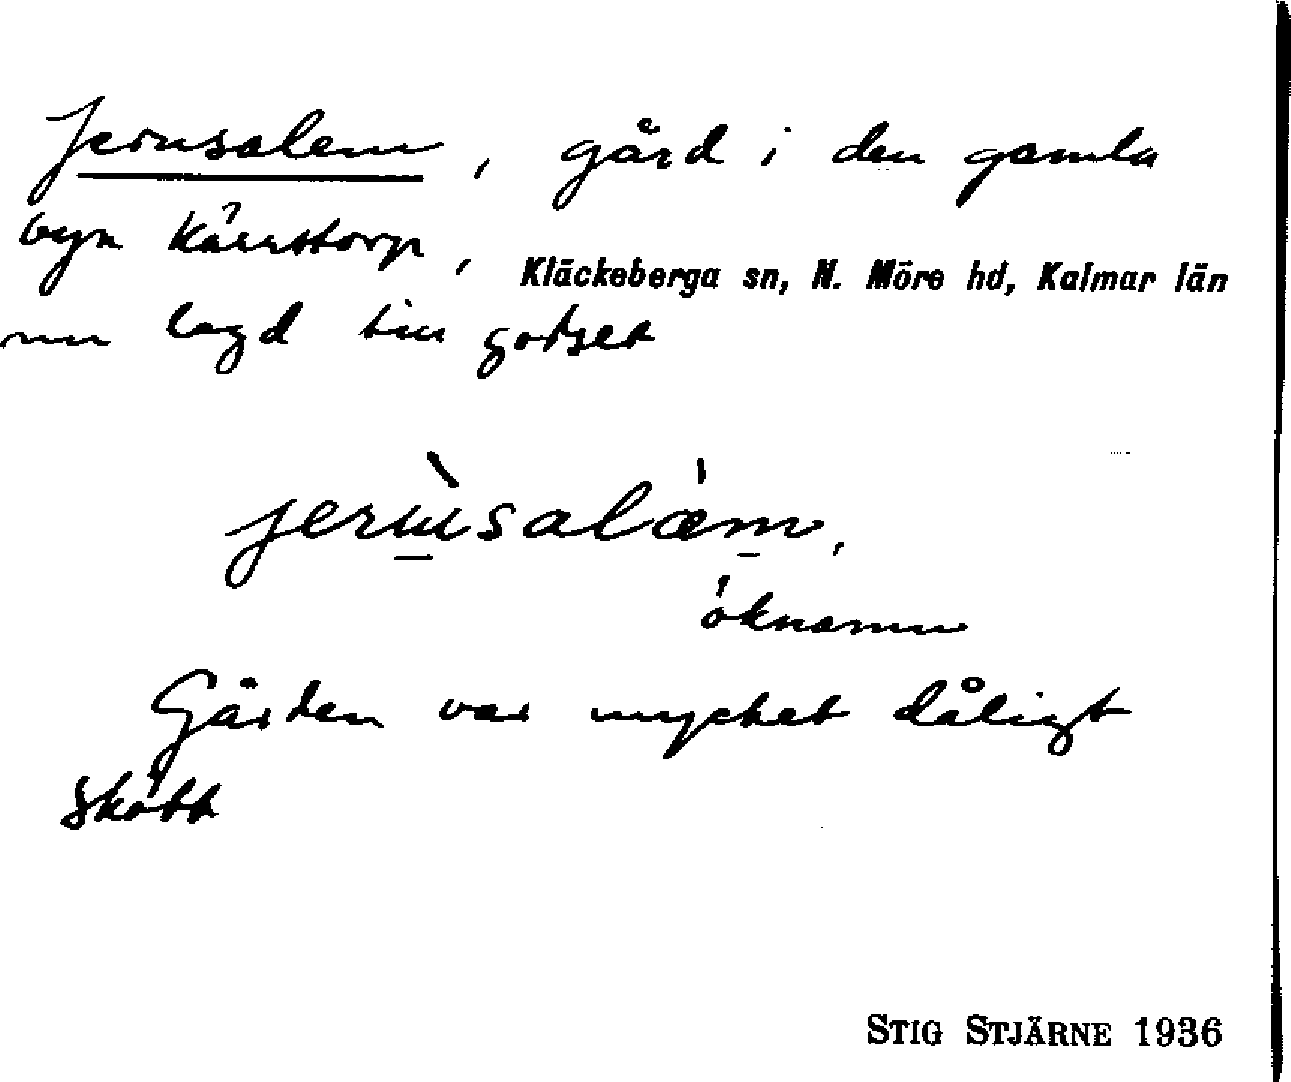 Jerusalem, gård i den gamla
byn Kärrstorp, Kläckeberga sn, N. Möre hd, Kalmar län
nu lagd till godset
jerɯ̀salæ̀m,
öknamn
Gården var mycket dåligt
skött
STIG STJÄRNE 1936